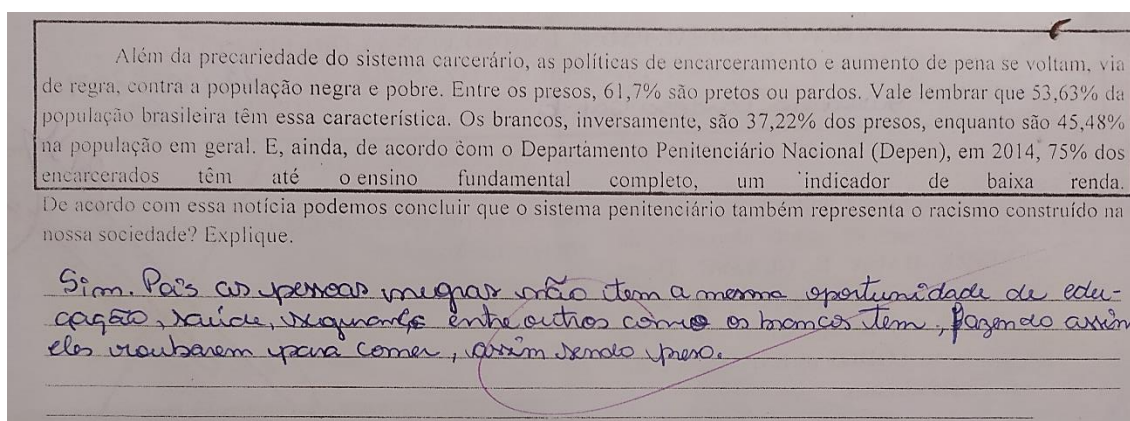 Além da precariedade do sistema carcerário, as políticas de encarceramento e aumento de pena se voltam, via
de regra, contra a população negra e pobre. Entre os presos, 61,7% são pretos ou pardos. Vale lembrar que 53,63% da
população brasileira têm essa característica. Os brancos, inversamente, são 37,22% dos presos, enquanto são 45,48%
na população em geral. E, ainda, de acordo com o Departamento Penitenciário Nacional (Depen), em 2014, 75% dos
encarcerados têm até o ensino fundamental completo, um indicador de baixa renda.
De acordo com essa notícia podemos concluir que o sistema penitenciário também representa o racismo construído na
nossa sociedade? Explique.
Sim. Pois as pessoas negras não tem a mesma oportunidade de edu-
cação, saúde, segurança entre outros como os brancos tem, fazendo assim
eles roubarem para comer, assim sendo preso.